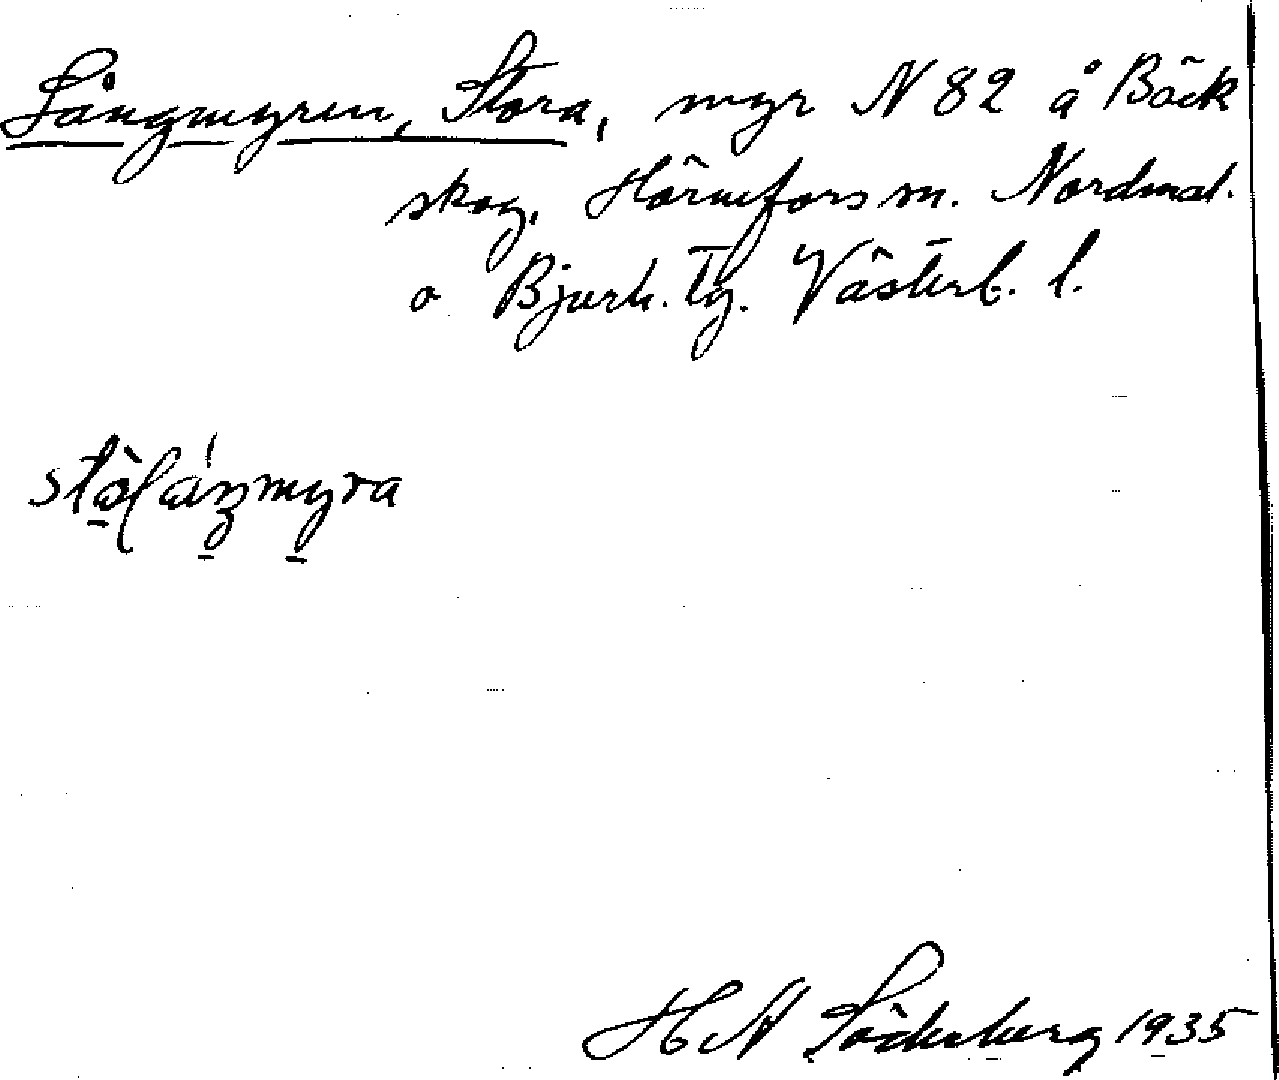 Långmyren, Stora, myr N 82 å Bäck
skog, Hörnefors sn. Nordmal.
o Bjurh. Tg. Västerb. l.
H A Söderberg 1935